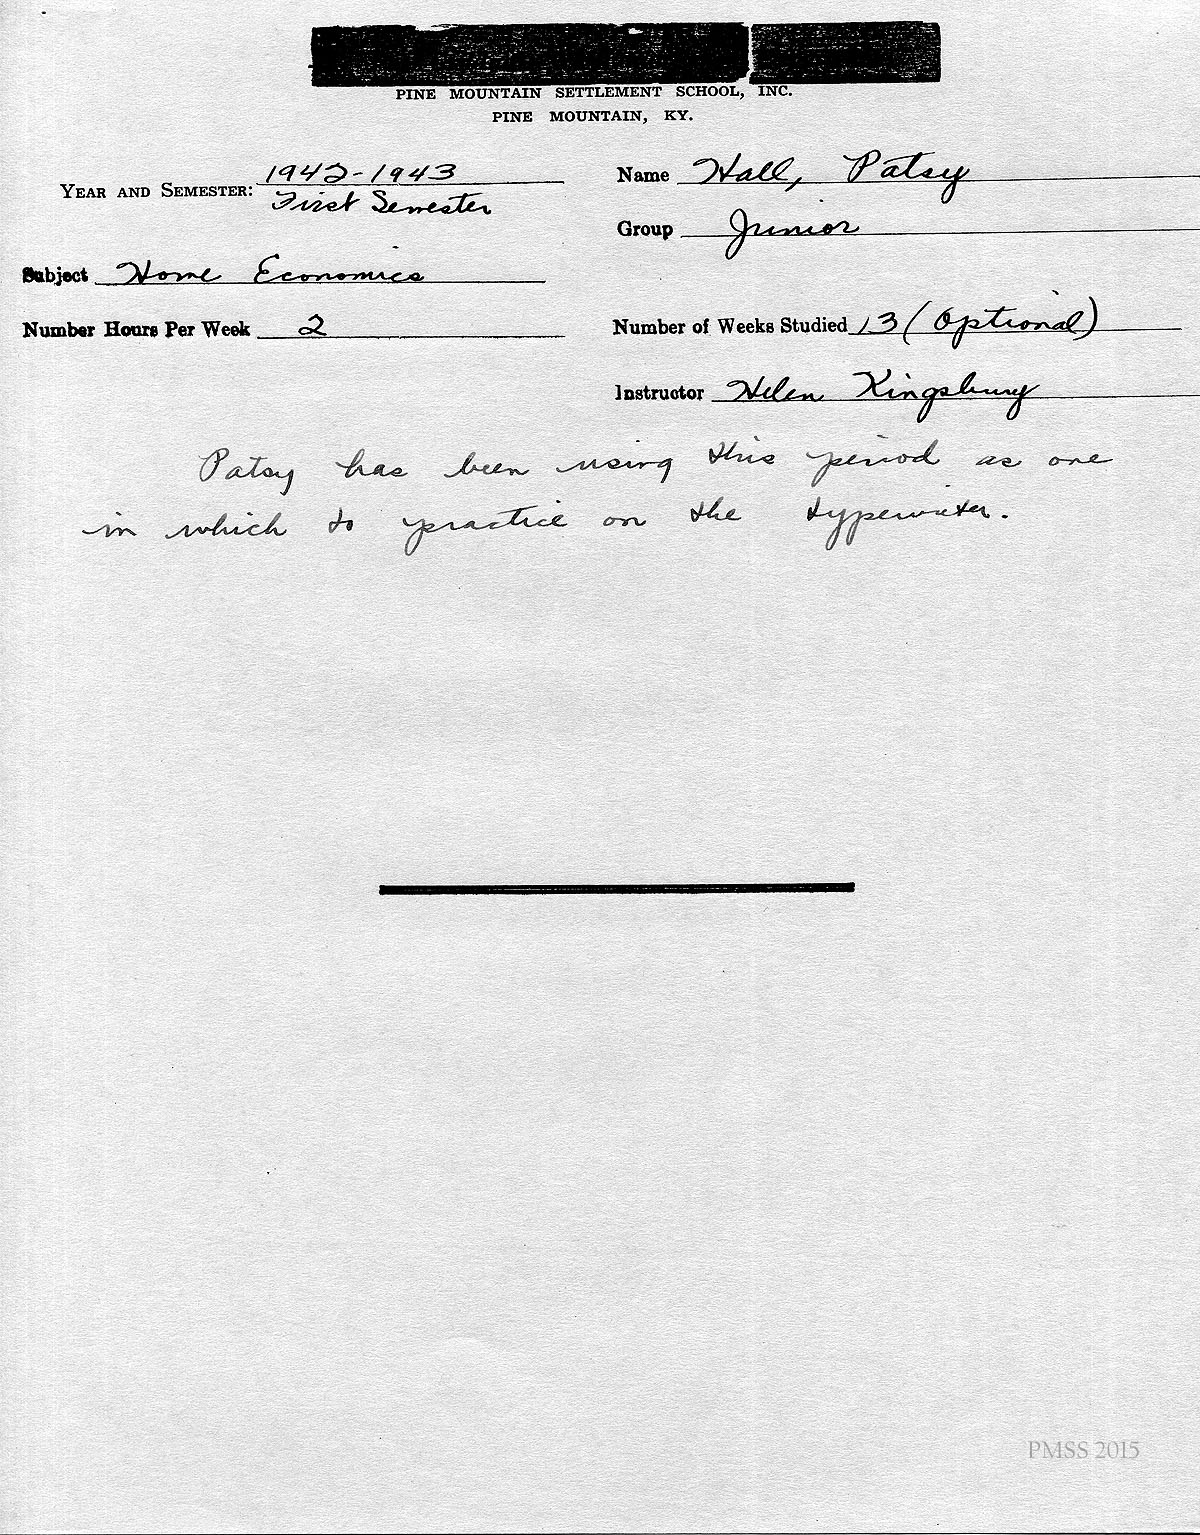 PINE MOUNTAIN SETTLEMENT SCHOOL, INC.
PINE MOUNTAIN, KY.
YEAR AND SEMESTER: 1942-1943
First Semester
Name Hall, Patsy
Group Junior
Subject Home Economics
Number Hours Per Week 2
Number of Weeks Studied 13 (Optional)
Instructor Helen Kingsbury
Patsy has been using this period as one
in which to practice on the typewriter.
PMSS 2015